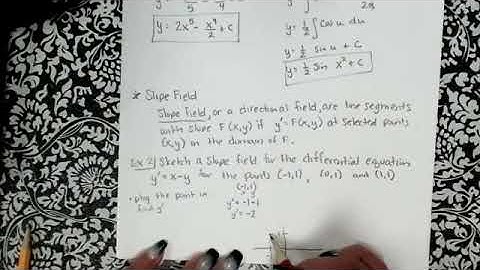 y: 2x⁵ - x⁴/2 + C
y: ½ ∫ Cos u du
y: ½ sin u + C
y: ½ Sin x² + C
* Slope Field
Slope field, or a directional field, are line segments
with slope F(x,y) if y' = F(x,y) at selected points
(x,y) in the domain of F.
Ex 2| Sketch a slope field for the differential equation
y' = x-y for the points (-1,1), (0,1) and (1,1)
• plug the point in
(-1,1)
y' = -1-1
y' = -2